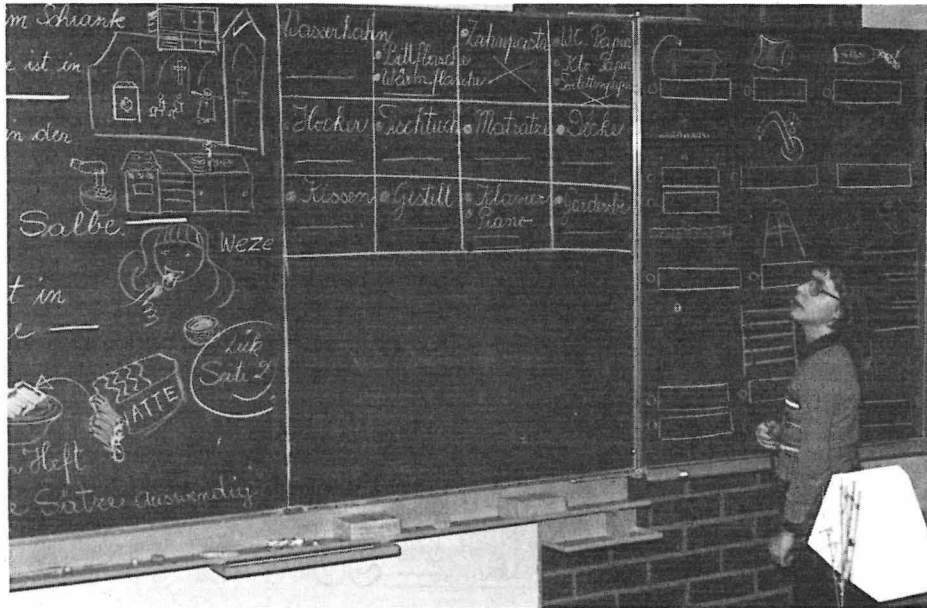 m Schrank
e ist in
in der
Salbe.
Weze
t in
e
Lük
Seite 2
WATTE
n Heft
e Sätze auswendig
Wasserhahn
Bettflasche
Wärmflasche
Zahnpasta
WC Papier
Klo Papier
Toilettenpapier
Hocker
Tischtuch
Matratze
Decke
Kissen
Gestell
Klavier
Piano
Garderobe